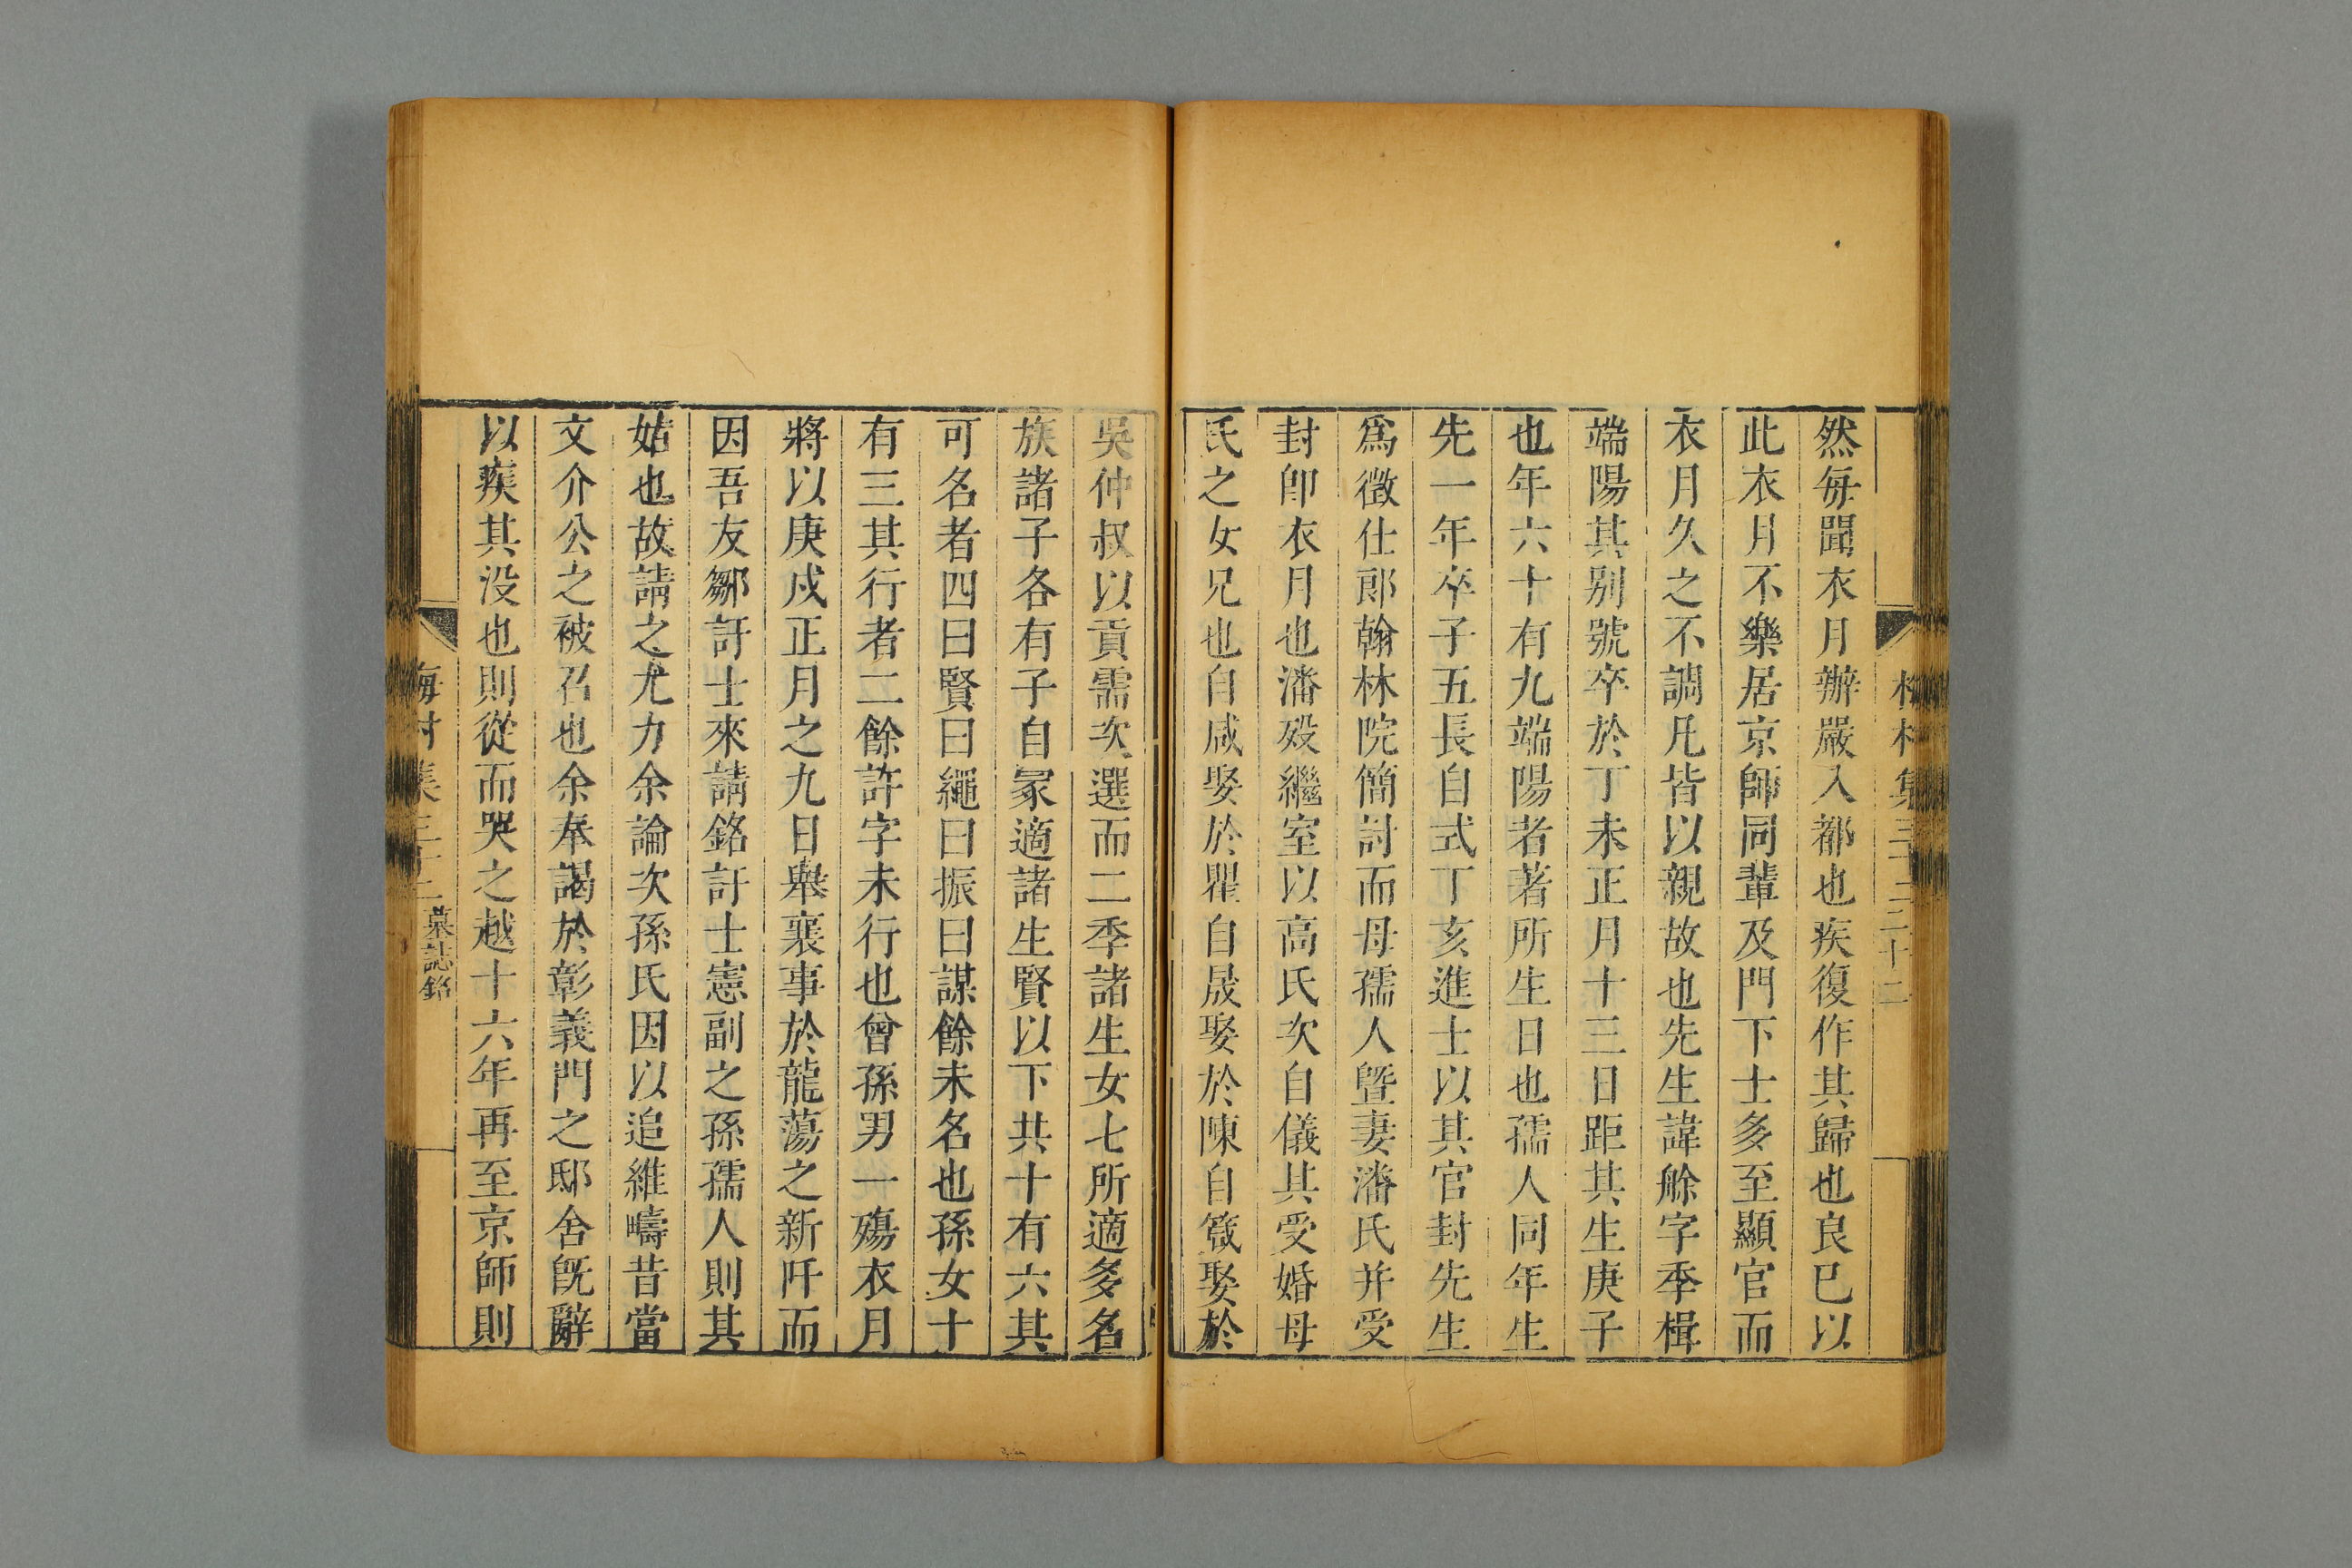 然每聞衣月辦嚴入都也疾復作其歸也良已以
此衣月不樂居京師同輩及門下士多至顯官而
衣月久之不調凡皆以親故也先生諱艅字季楫
端陽其别號卒於丁未正月十三日距其生庚子
也年六十有九端陽者著所生日也孺人同年生
先一年卒子五長自式丁亥進士以其官封先生
爲徵仕郎翰林院簡討而母孺人曁妻潘氏并受
封卽衣月也潘歿繼室以高氏次自儀其受婚母
氏之女兄也自咸娶於瞿自晟娶於陳自箴娶於
吳仲叔以貢需次選而二季諸生女七所適多名
族諸子各有子自冡適諸生賢以下共十有六其
可名者四曰賢曰繩曰振曰謀餘未名也孫女十
有三其行者二餘許字未行也曾孫男一殤衣月
將以庚戍正月之九日舉襄事於龍蕩之新阡而
因吾友鄒訏士來請銘訏士憲副之孫孺人則其
姑也故請之尤力余論次孫氏因以追維疇昔當
文介公之被召也余奉謁於彰義門之邸舍旣辭
以疾其没也則從而哭之越十六年再至京師則
梅村集三十二 墓誌銘